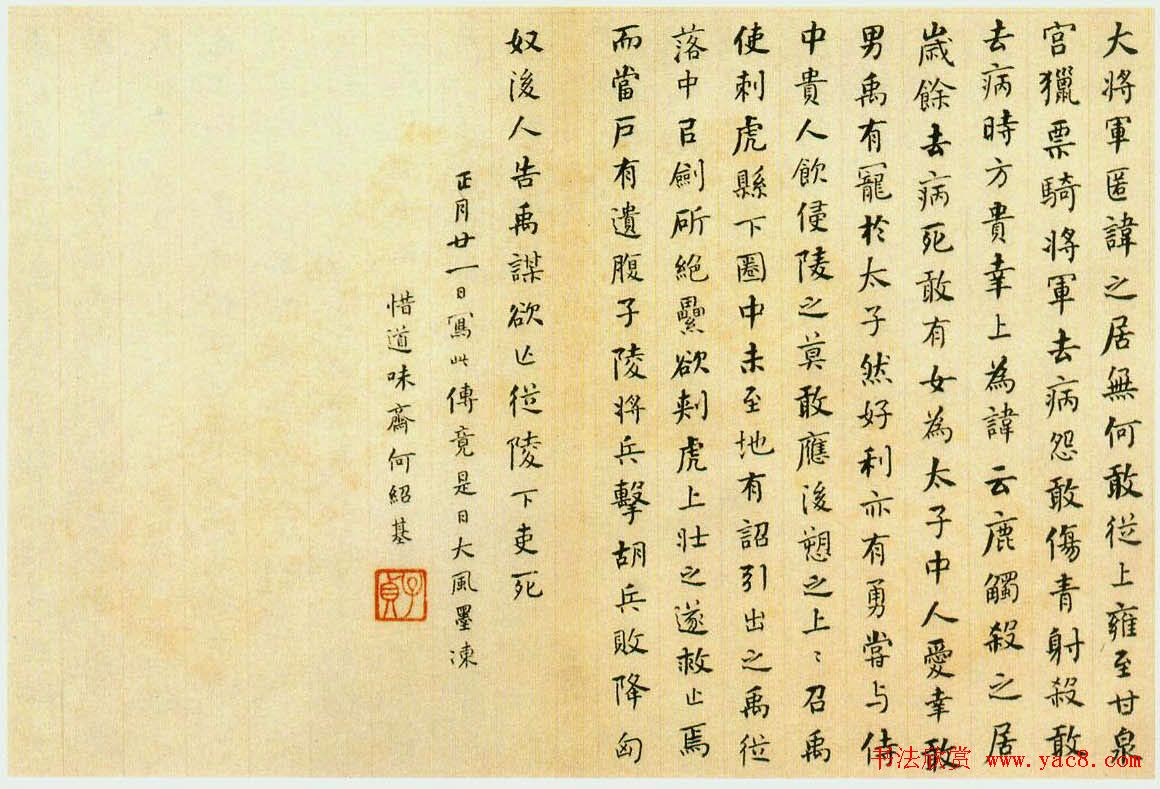 大將軍匿諱之居無何敢從上雍至甘泉
宮獵票騎將軍去病怨敢傷青射殺敢
去病時方貴幸上為諱云鹿觸殺之居
歲餘去病死敢有女為太子中人愛幸敢
男禹有寵於太子然好利亦有勇嘗与侍
中貴人飲侵陵之莫敢應後愬之上〻召禹
使刺虎縣下圈中未至地有詔引出之禹從
落中㠯劍斫絕纍欲刺虎上壯之遂救止焉
而當戶有遺腹子陵將兵擊胡兵敗降匈
奴後人告禹謀欲亡從陵下吏死
正月廿一日寫此傳竟是日大風墨凍
惜道味齋何紹基
子貞
书法欣赏 www.yac8.com